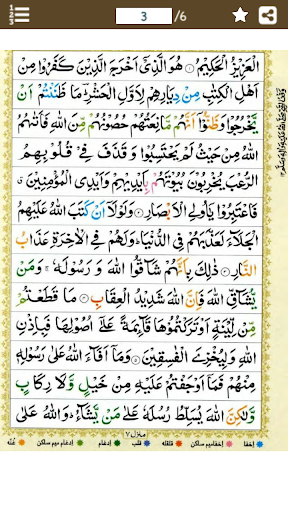 3 /6
الْعَزِيْزُ الْحَكِيْمُ ۝ هُوَ الَّذِيْٓ اَخْرَجَ الَّذِيْنَ كَفَرُوْا مِنْ
اَهْلِ الْكِتٰبِ مِنْ دِيَارِهِمْ لِاَوَّلِ الْحَشْرِ ؔ مَا ظَنَنْتُمْ اَنْ
يَّخْرُجُوْا وَظَنُّوْٓا اَنَّهُمْ مَّانِعَتُهُمْ حُصُوْنُهُمْ مِّنَ اللّٰهِ فَاَتٰىهُمُ
اللّٰهُ مِنْ حَيْثُ لَمْ يَحْتَسِبُوْا وَقَذَفَ فِيْ قُلُوْبِهِمُ
الرُّعْبَ يُخْرِبُوْنَ بُيُوْتَهُمْ بِاَيْدِيْهِمْ وَاَيْدِي الْمُؤْمِنِيْنَ
فَاعْتَبِرُوْا يٰٓاُولِي الْاَبْصَارِ ۝ وَلَوْلَآ اَنْ كَتَبَ اللّٰهُ عَلَيْهِمُ
الْجَلَآءَ لَعَذَّبَهُمْ فِي الدُّنْيَا ؕ وَلَهُمْ فِي الْاٰخِرَةِ عَذَابُ
النَّارِ ۝ ذٰلِكَ بِاَنَّهُمْ شَآقُّوا اللّٰهَ وَرَسُوْلَهٗ ۚ وَمَنْ
يُّشَآقِّ اللّٰهَ فَاِنَّ اللّٰهَ شَدِيْدُ الْعِقَابِ ۝ مَا قَطَعْتُمْ
مِّنْ لِّيْنَةٍ اَوْ تَرَكْتُمُوْهَا قَآئِمَةً عَلٰٓى اُصُوْلِهَا فَبِاِذْنِ
اللّٰهِ وَلِيُخْزِيَ الْفٰسِقِيْنَ ۝ وَمَآ اَفَآءَ اللّٰهُ عَلٰى رَسُوْلِهٖ
مِنْهُمْ فَمَآ اَوْجَفْتُمْ عَلَيْهِ مِنْ خَيْلٍ وَّلَا رِكَابٍ
وَّلٰكِنَّ اللّٰهَ يُسَلِّطُ رُسُلَهٗ عَلٰى مَنْ يَّشَآءُ ؕ وَاللّٰهُ عَلٰى
منزل ۷
اخفا اخفاميم ساكن قلقله قلب ادغام ادغام ميم ساكن غُنّه